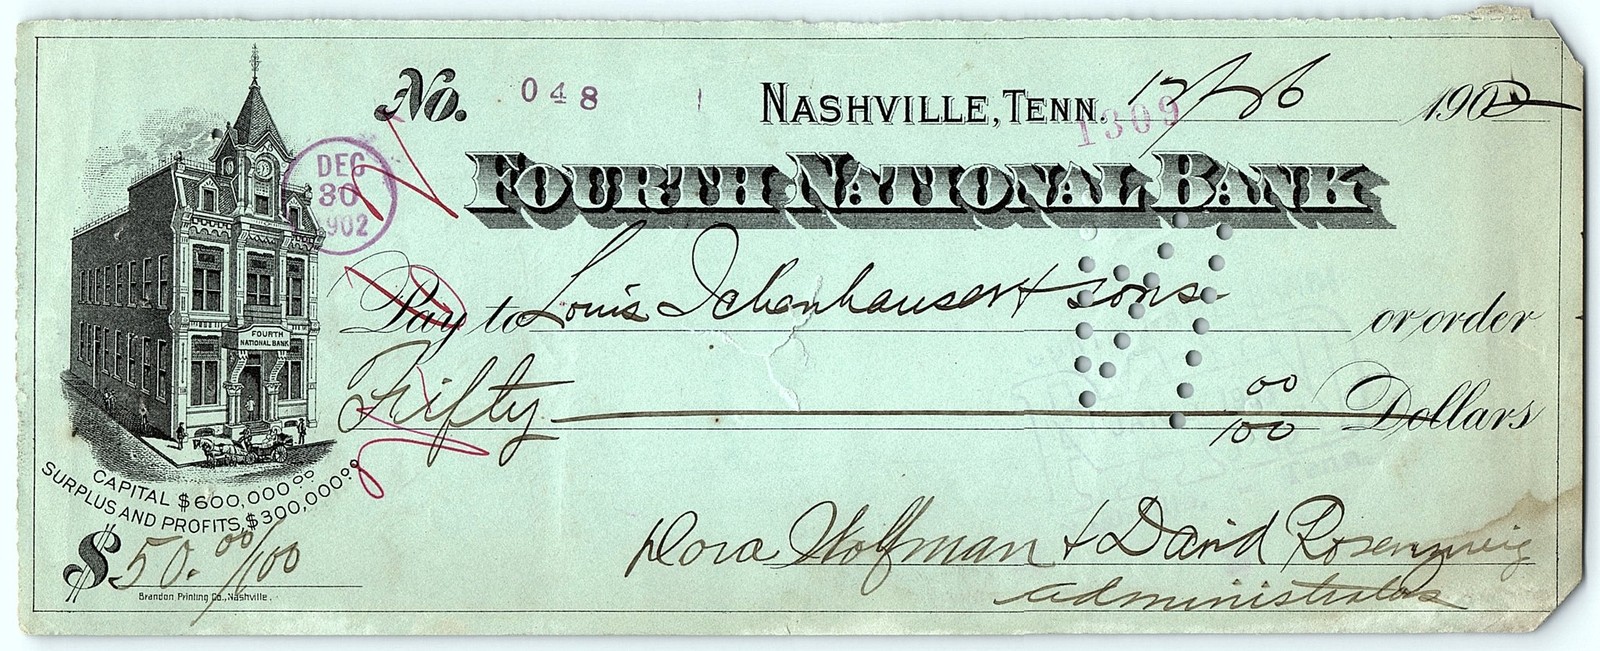 No. 048
NASHVILLE, TENN. 12/26 1902
1309
FOURTH NATIONAL BANK
DEC
30
1902
Pay to Louis Ichenhauser & sons or order
Fifty 00/100 Dollars
FOURTH
NATIONAL BANK
CAPITAL $600,000.00
SURPLUS AND PROFITS, $300,000.00
$50.00/100
Dora Wolfman & David Rosenzweig
administrators
Brandon Printing Co., Nashville.